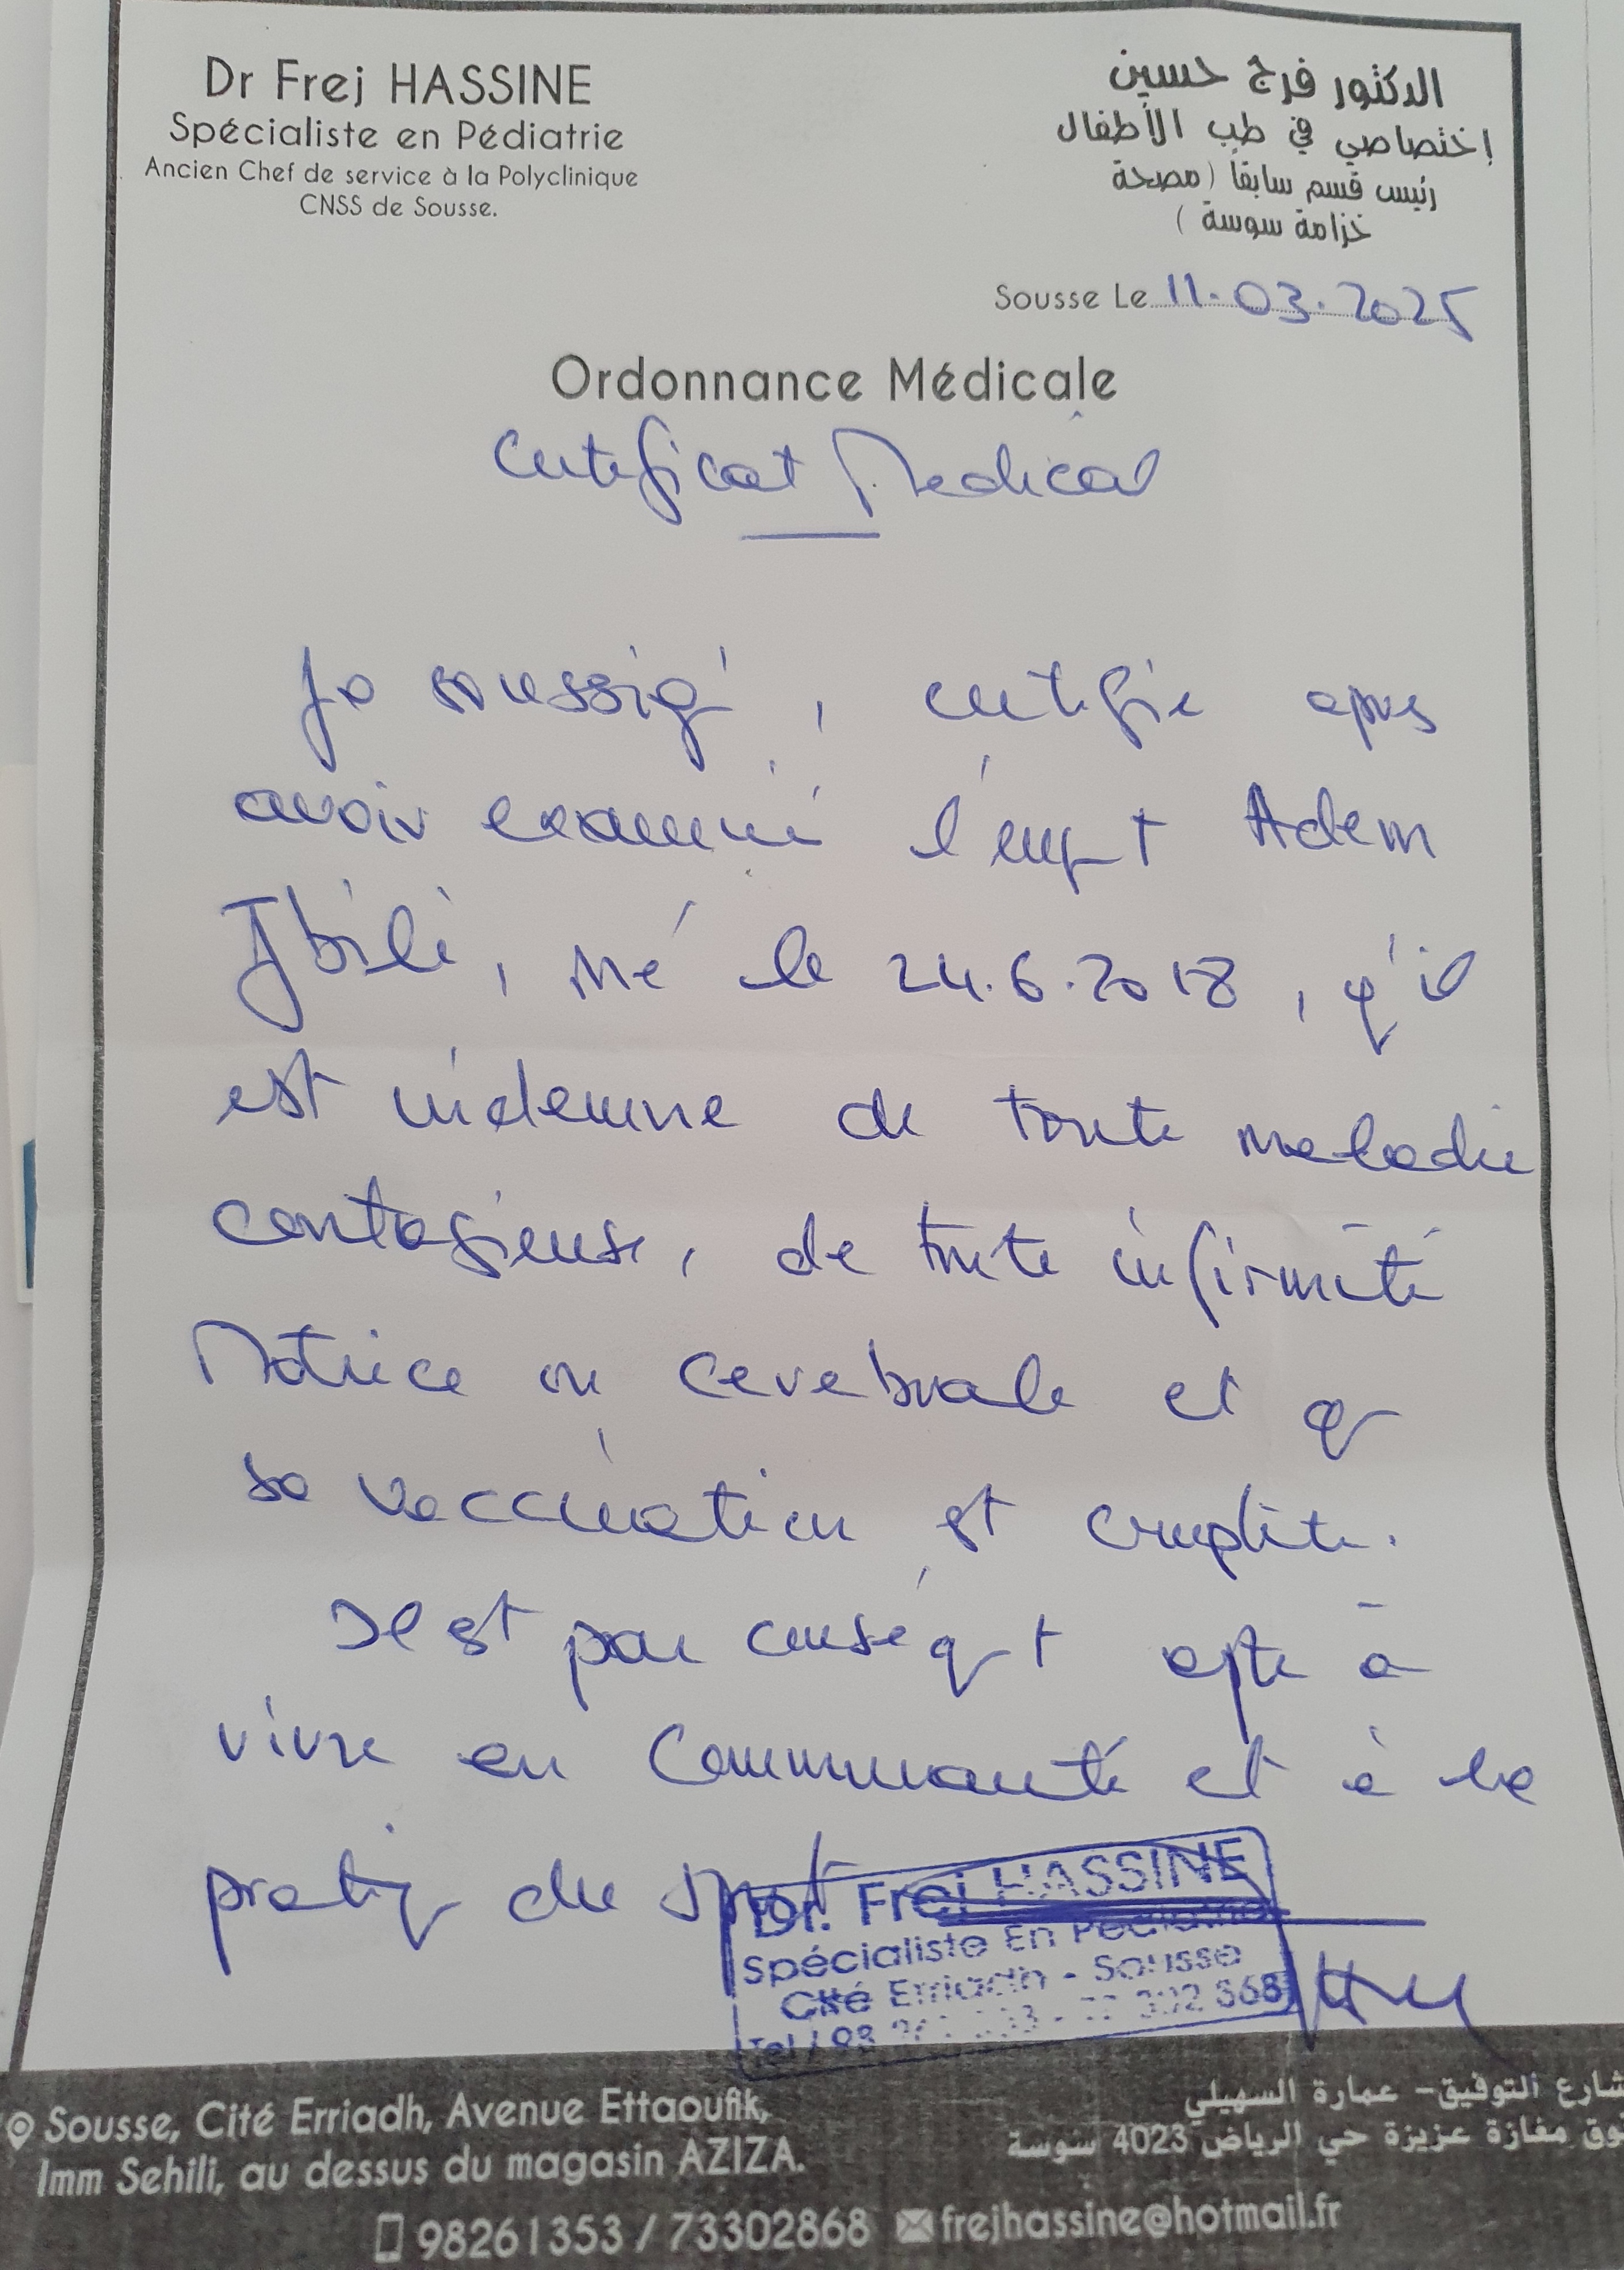 Dr Frej HASSINE
Spécialiste en Pédiatrie
Ancien Chef de service à la Polyclinique
CNSS de Sousse.
الدكتور فرج حسين
إختصاصي في طب الأطفال
رئيس قسم سابقاً (مصحة
خزامة سوسة )
Sousse Le 11.03.2025
Ordonnance Médicale
Certificat Medical
Je soussigé, certifie apres
avoir examiné l'enft Adem
Jbili, né le 24.6.2018, q'il
est indemne de toute maladie
contagieuse, de toute infirmité
Motrice ou cerebrale et q
sa vaccination est complète.
Il est par conséqt apte à
vivre en Communauté et à la
pratiq du sport
Dr. Frej HASSINE
Spécialiste En Pédiatrie
Cité Erriadh - Sousse
Tel / 98
Sousse, Cité Erriadh, Avenue Ettaoufik,
Imm Sehili, au dessus du magasin AZIZA.
شارع التوفيق- عمارة السهيلي
فوق مغازة عزيزة حي الرياض 4023 سوسة
98261353 / 73302868 frejhassine@hotmail.fr